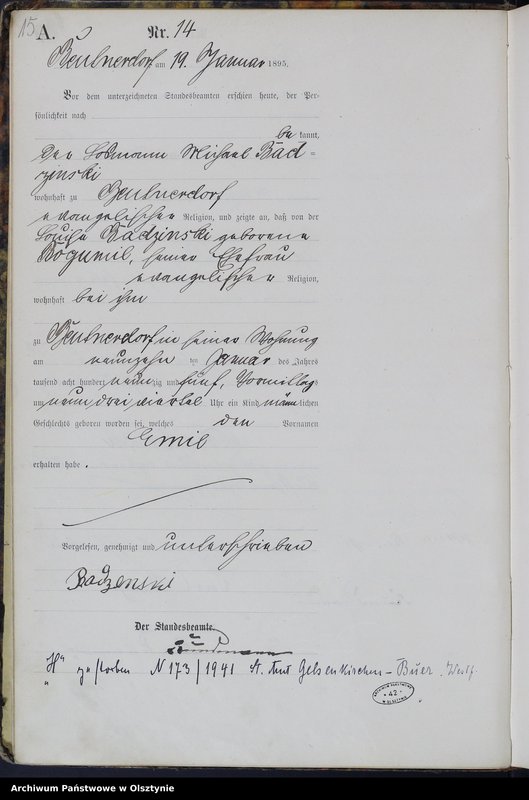 15
A.
Nr. 14
Beutnerdorf am 19. Januar 1895.
Vor dem unterzeichneten Standesbeamten erschien heute, der Per-
sönlichkeit nach
be kannt,
Der Losmann Michael Bad=
zinski
wohnhaft zu Beutnerdorf
evangelischer Religion, und zeigte an, daß von der
Louise Radzinski geborene
Bogumil, seiner Ehefrau
evangelischer Religion,
wohnhaft bei ihm
zu Beutnerdorf in seiner Wohnung
am neunzehn ten Januar des Jahres
tausend acht hundert neun zig und fünf, Vormittag
um neun drei viertel Uhr ein Kind männ lichen
Geschlechts geboren worden sei, welches den Vornamen
Emil
erhalten habe.
Vorgelesen, genehmigt und unterschrieben
Radzenski
Der Standesbeamte.
"H" gestorben N 173/1941 St. Amt Gelsenkirchen-Buer, Westf.
ARCHIWUM PAŃSTWOWE
42
W OLSZTYNIE
Archiwum Państwowe w Olsztynie